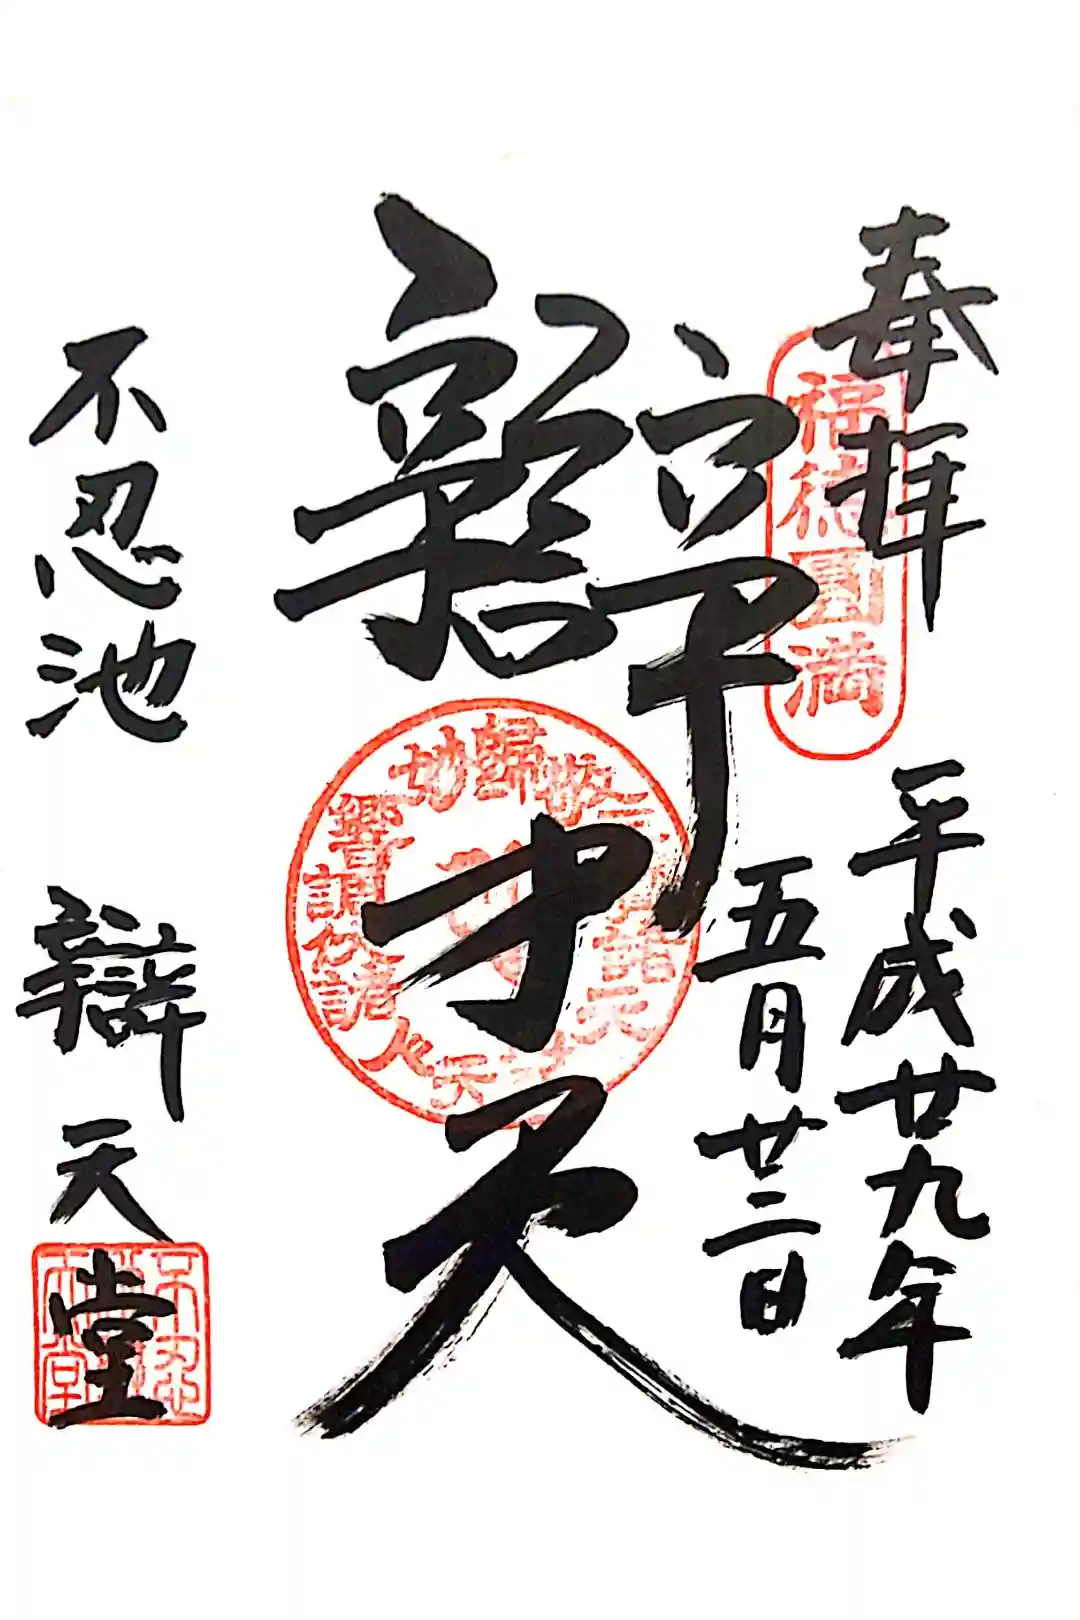 奉拝
福徳圓満
平成廿九年
五月廿二日
辯才天
不忍池 辯天堂